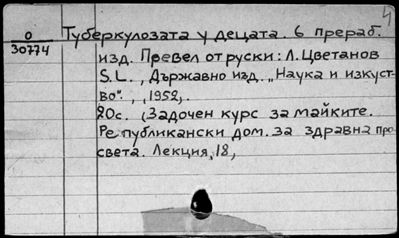 4
о Туберкулозата у децата. 6 прераб.
30774 изд. Превел от руски: Л. Цветанов
S.L., Държавно изд. „Наука и изкуст-
во". , ,1952,.
20с. (Задочен курс за майките.
Републикански дом. за здравна про-
света. Лекция, 18,